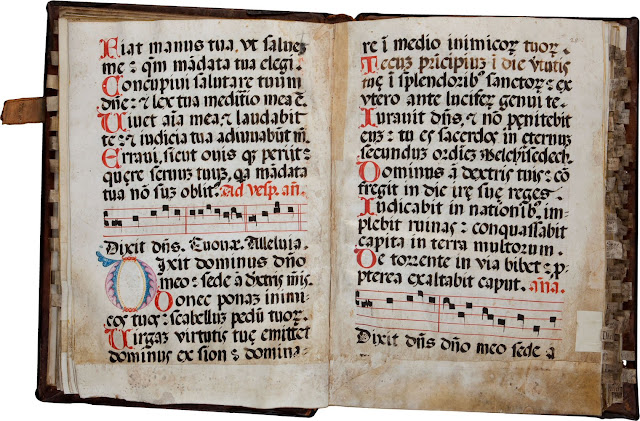 Fiat manus tua, vt saluet
me: qm̄ mādata tua elegi.
Concupiui salutare tuum
dn̄e: ⁊ lex tua meditio mea ē.
Uiuet aīa mea ⁊ laudabit
te: ⁊ iudicia tua adiuuabūt m̄.
Erraui, sicut ouis q̄ perijt:
quęre seruuȝ tuuȝ, qȝ mādata
tua non suȝ oblit⁹. Ad vesp. an̄.
Dixit dn̄s. Euouæ. Alleluia.
Dixit dominus dn̄o
meo: sede a dextris meis.
Donec ponaȝ inimi-
cos tuos: scabelluȝ pedū tuoꝝ.
Uirgaȝ virtutis tuę emittet
dominus ex sion: domina-
re ī medio inimicoꝝ tuoꝝ.
Tecuȝ prīcipiuȝ ī die v̄tutis
tuę ī splendorib⁹ sanctoꝝ: ex
vtero ante luciferȝ genui te.
Iurauit dn̄s, ⁊ nō penitebit
euȝ: tu es sacerdos in eternuȝ
secunduȝ ordīeȝ Melchisedech.
Dominus a dextris tuis: cō
fregit in die irę suę reges.
Iudicabit in nationib⁹, im-
plebit ruinas: conquassabit
capita in terra multorum.
De torrente in via bibet: p̱-
pterea exaltabit caput. an̄a.
Dixit dn̄s dn̄o meo sede a